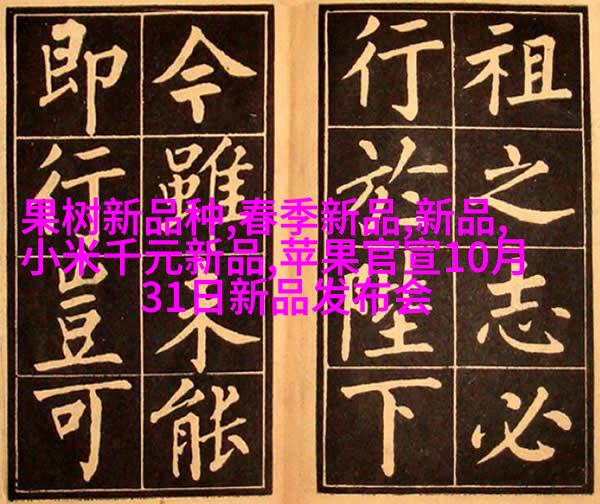 祖之志必
行於陛下
今雖未能
即行豈可
果树新品种,春季新品,新品,
小米千元新品,苹果官宣10月
31日新品发布会